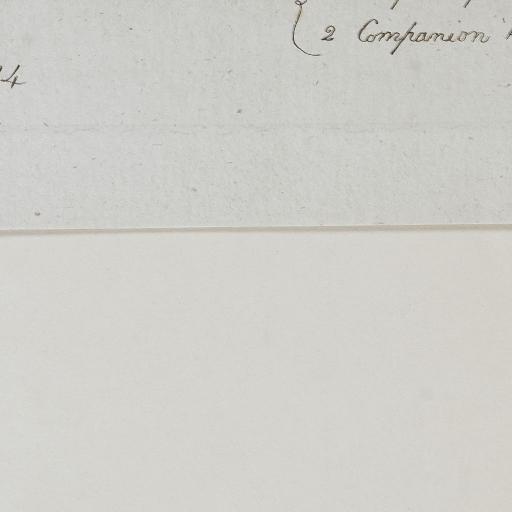 2 Companion
4